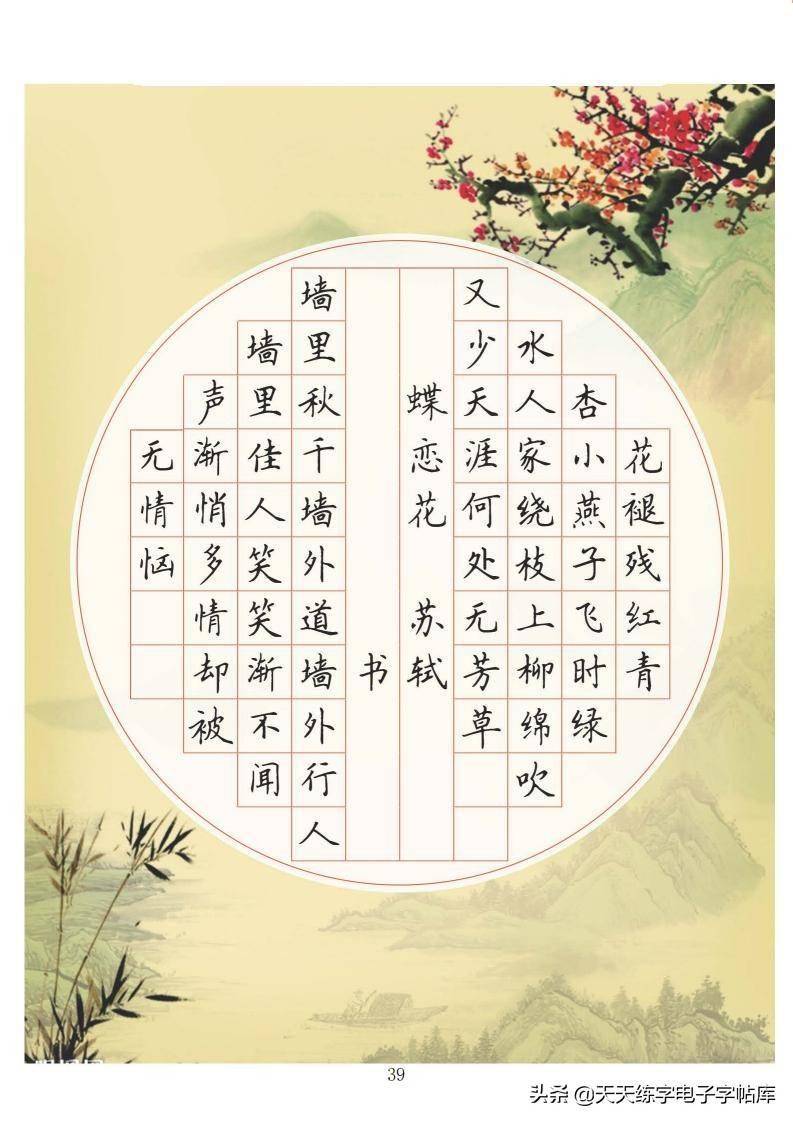 花褪残红青
杏小燕子飞时绿
水人家绕枝上柳绵吹
又少天涯何处无芳草
蝶恋花 苏轼
书
墙里秋千墙外道墙外行人
墙里佳人笑笑渐不闻
声渐悄多情却被
无情恼
39
头条 @天天练字电子字帖库